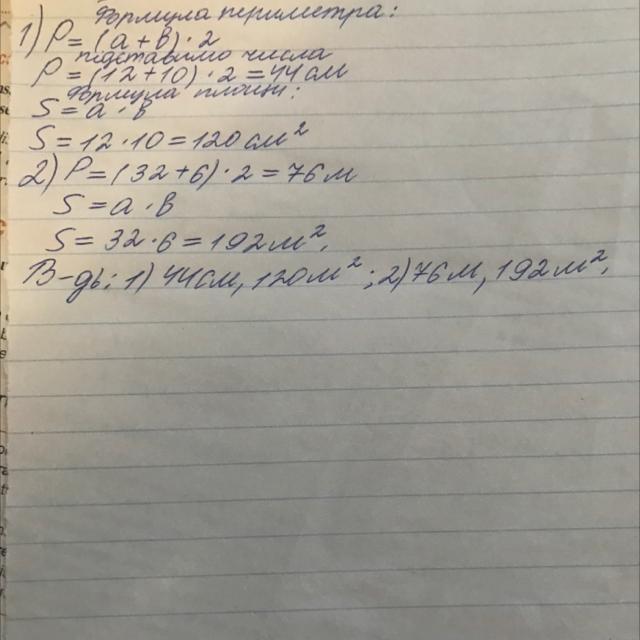 Формула периметра:
1) P = (a + b) · 2
підставимо числа
P = (12 + 10) · 2 = 44 см
Формула площі:
S = a · b
S = 12 · 10 = 120 см²
2) P = (32 + 6) · 2 = 76 м
S = a · b
S = 32 · 6 = 192 м².
В-дь: 1) 44 см, 120 м²; 2) 76 м, 192 м².